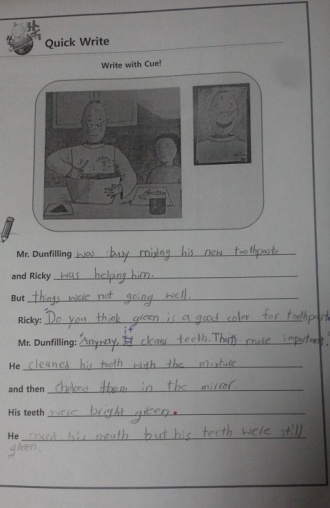 Quick Write
Write with Cue!
Mr. Dunfilling was busy mixing his new toothpaste
and Ricky was helping him.
But things were not going well.
Ricky: "Do you think green is a good color for toothpaste
Mr. Dunfilling: "Anyway, it cleans teeth. That's more important.
He cleaned his teeth with the mixture
and then checked them in the mirror.
His teeth were bright green.
He rinsed his mouth but his teeth were still
green.